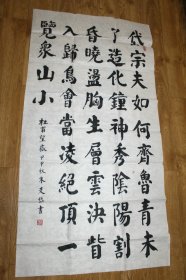 岱宗夫如何齊魯青未
了造化鐘神秀陰陽割
昏曉盪胸生層雲決眥
入歸鳥會當凌絕頂一
覽衆山小
杜甫望嶽